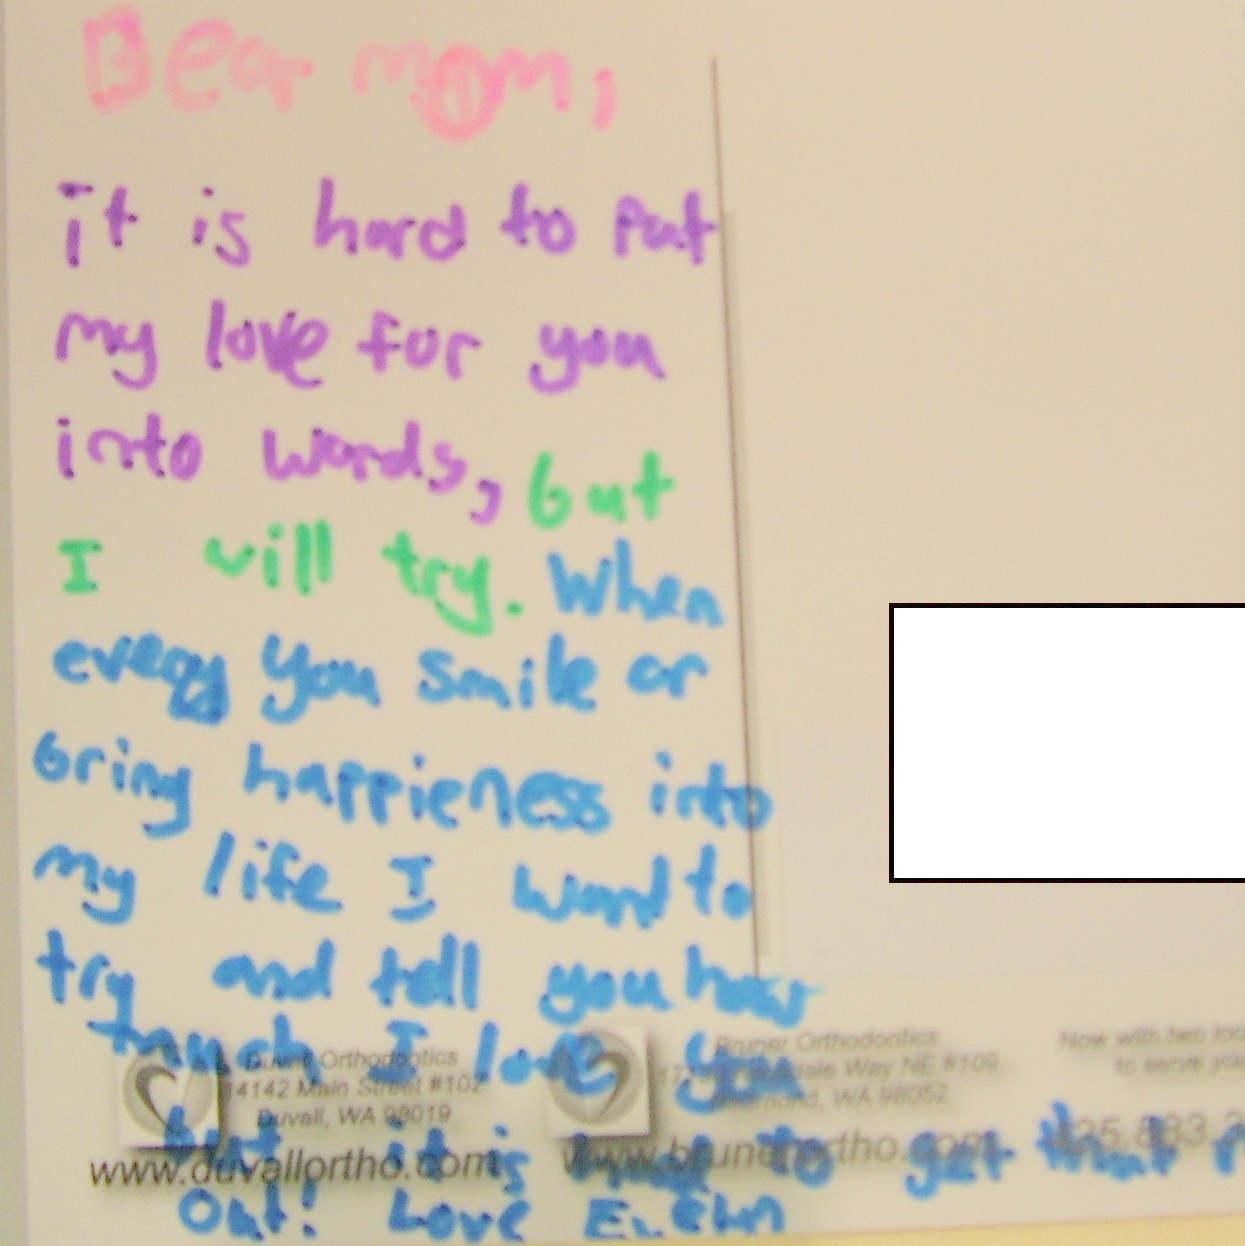 Dear mom,
it is hard to put
my love for you
into words, but
I will try. When
every you smile or
bring happieness into
my life I want to
try and tell you how
much I love you
but it is hard to get that
Out! Love
Duvall Orthodontics
14142 Main Street #102
Duvall, WA 98019
www.duvallortho.com
Bruner Orthodontics
Way NE #109
Redmond, WA 98052
www.brunerortho.com
Now with two
to serve